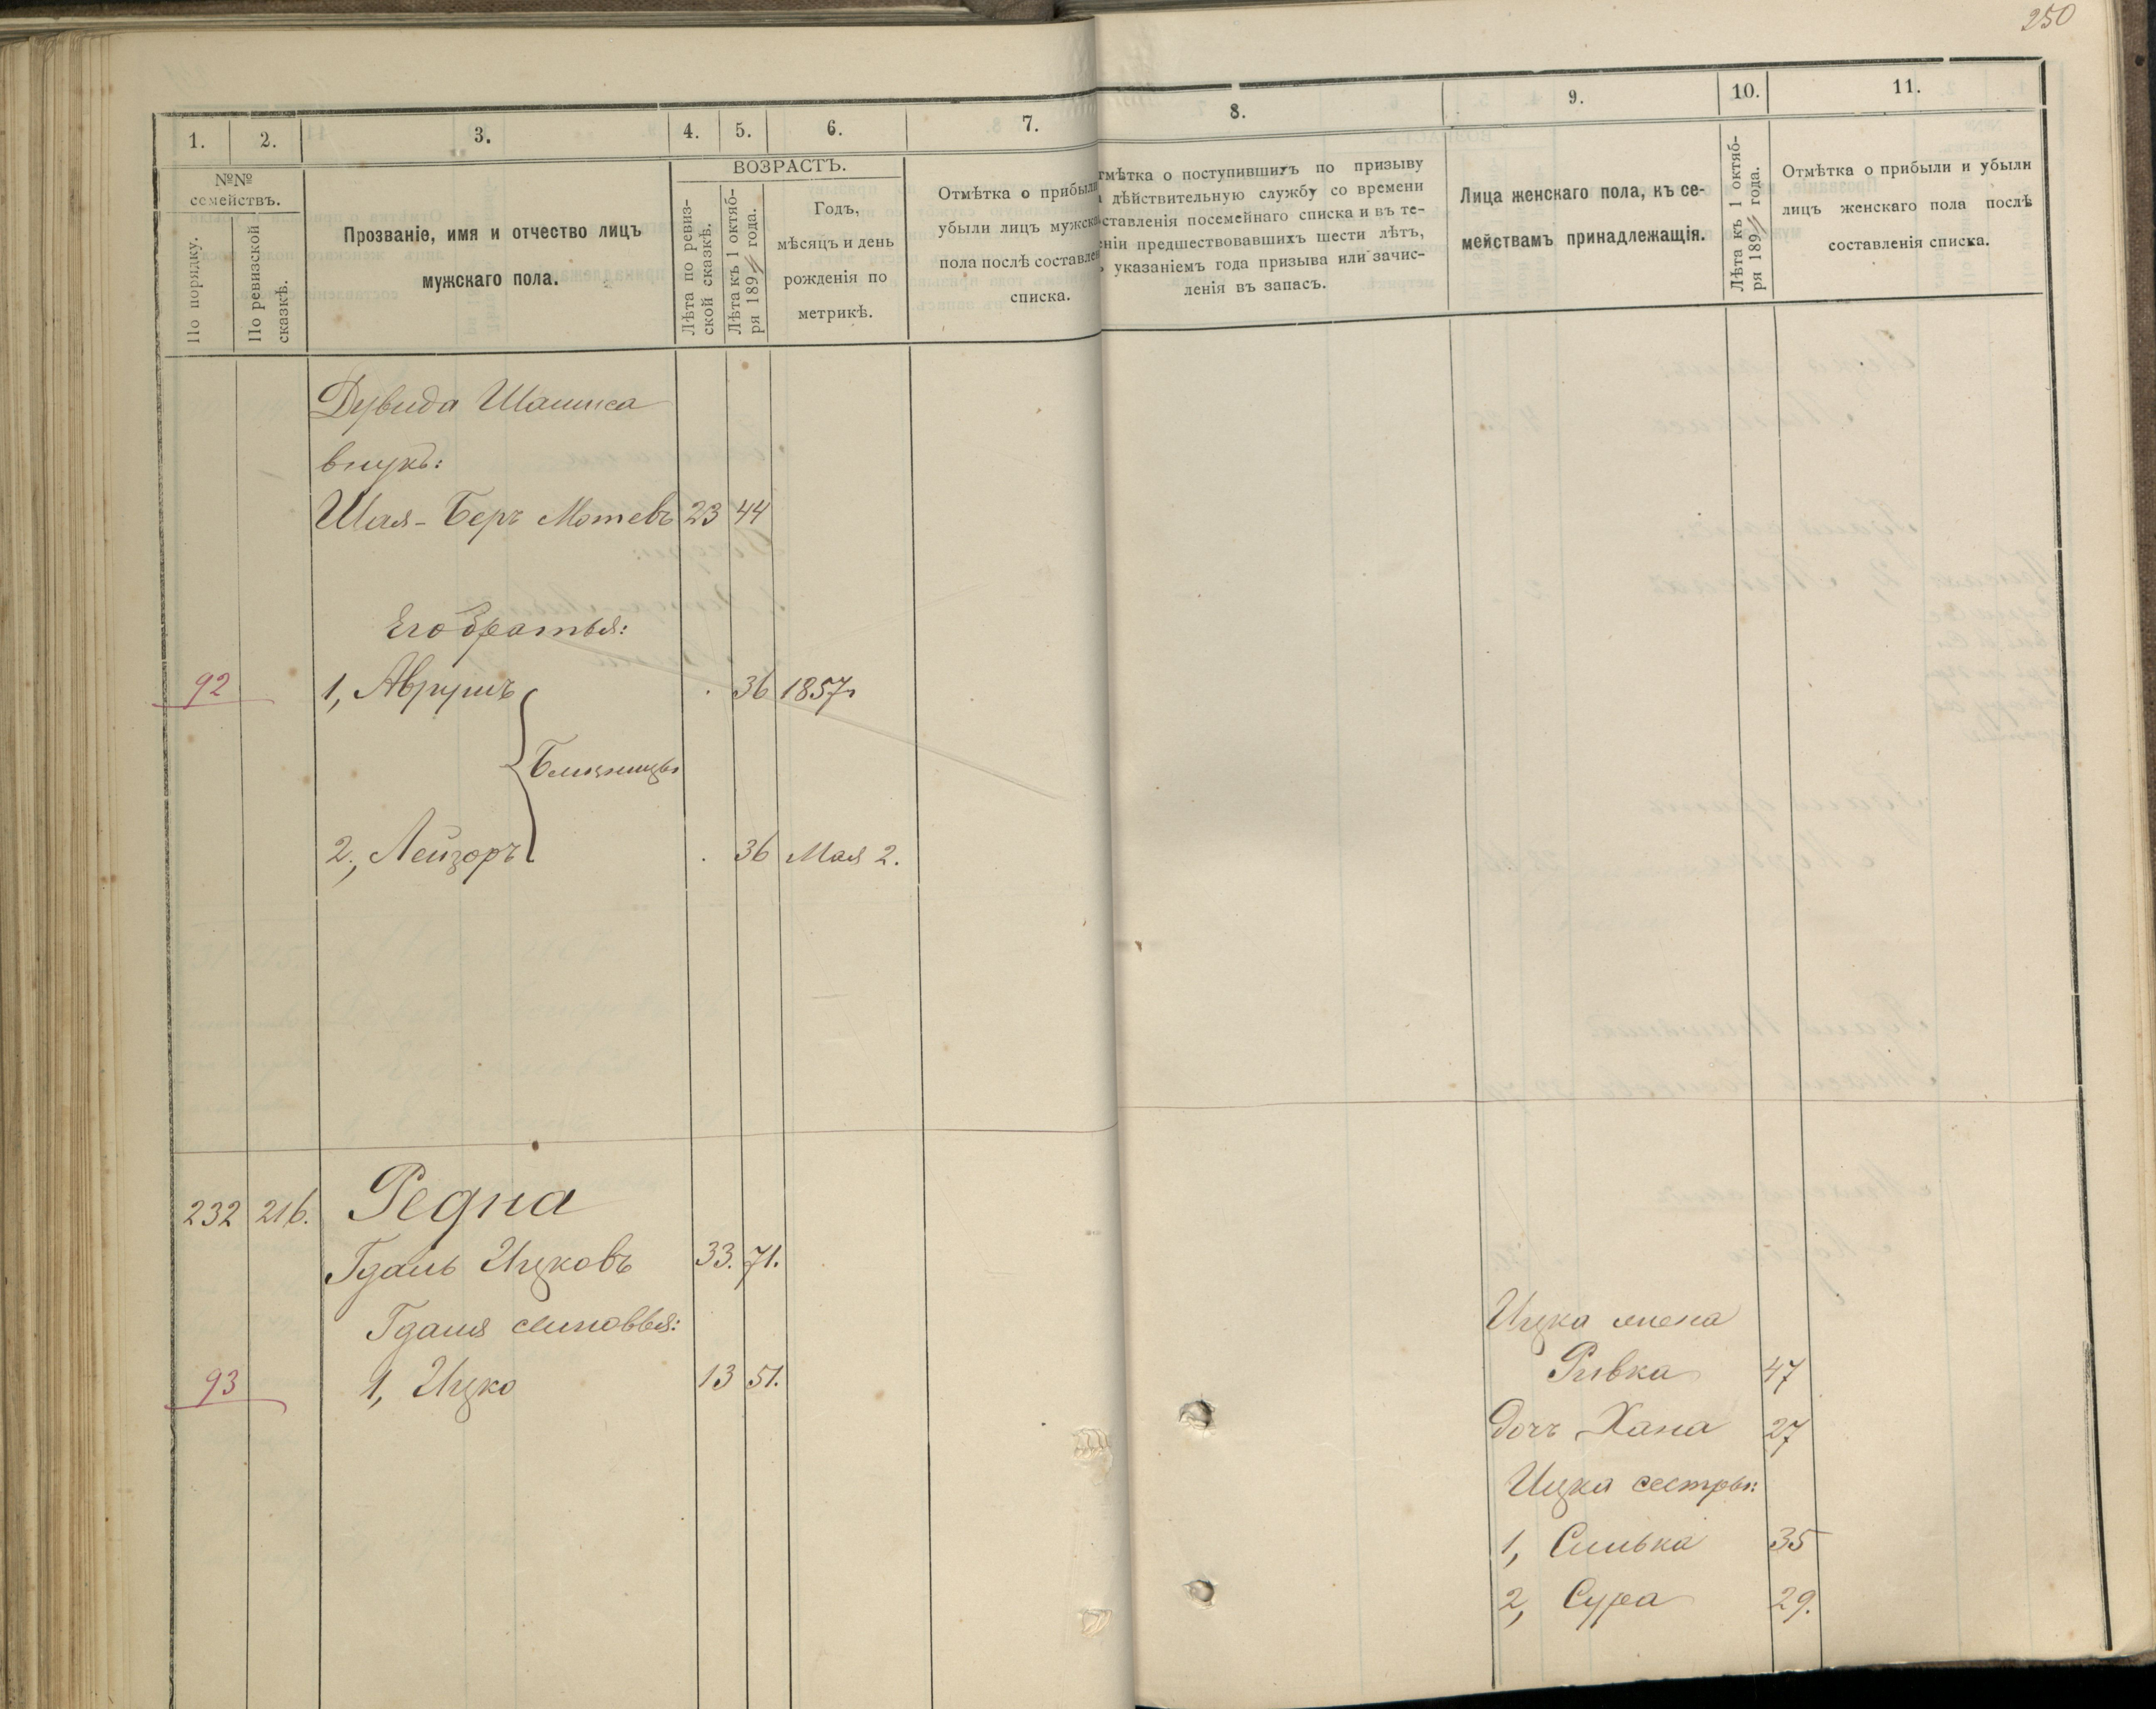 250
1. 2. 3. 4. 5. 6. 7. 8. 9. 10. 11.
№№ семействъ.
По порядку.
По ревизской сказкѣ.
Прозваніе, имя и отчество лицъ
мужскаго пола.
ВОЗРАСТЪ.
Лѣта по ревиз-
ской сказкѣ.
Лѣта къ 1 октяб-
ря 189 года.
Годъ,
мѣсяцъ и день
рожденія по
метрикѣ.
Отмѣтка о прибыли
убыли лицъ мужска
пола послѣ составлен
списка.
тмѣтка о поступившихъ по призыву
дѣйствительную службу со времени
ставленія посемейнаго списка и въ те-
ніи предшествовавшихъ шести лѣтъ,
указаніемъ года призыва или зачис-
ленія въ запасъ.
Лица женскаго пола, къ се-
мействамъ принадлежащія.
Лѣта къ 1 октяб-
ря 189 года.
Отмѣтка о прибыли и убыли
лицъ женскаго пола послѣ
составленія списка.
Дувида
внукъ:
Шая-Беръ Мотевъ 23 44
Его братья:
92 1, Аврумъ 36 1857г
Близнецы
2, Лейзоръ 36 Мая 2.
232 216. Редна
Гдаль Ицковъ 33. 71.
Гдаля сыновья:
93 1, Ицко 13 51.
Ицка жена
Ривка 47
дочь Хана 27
Ицка сестры:
1, Симка 35
2, Сура 29.